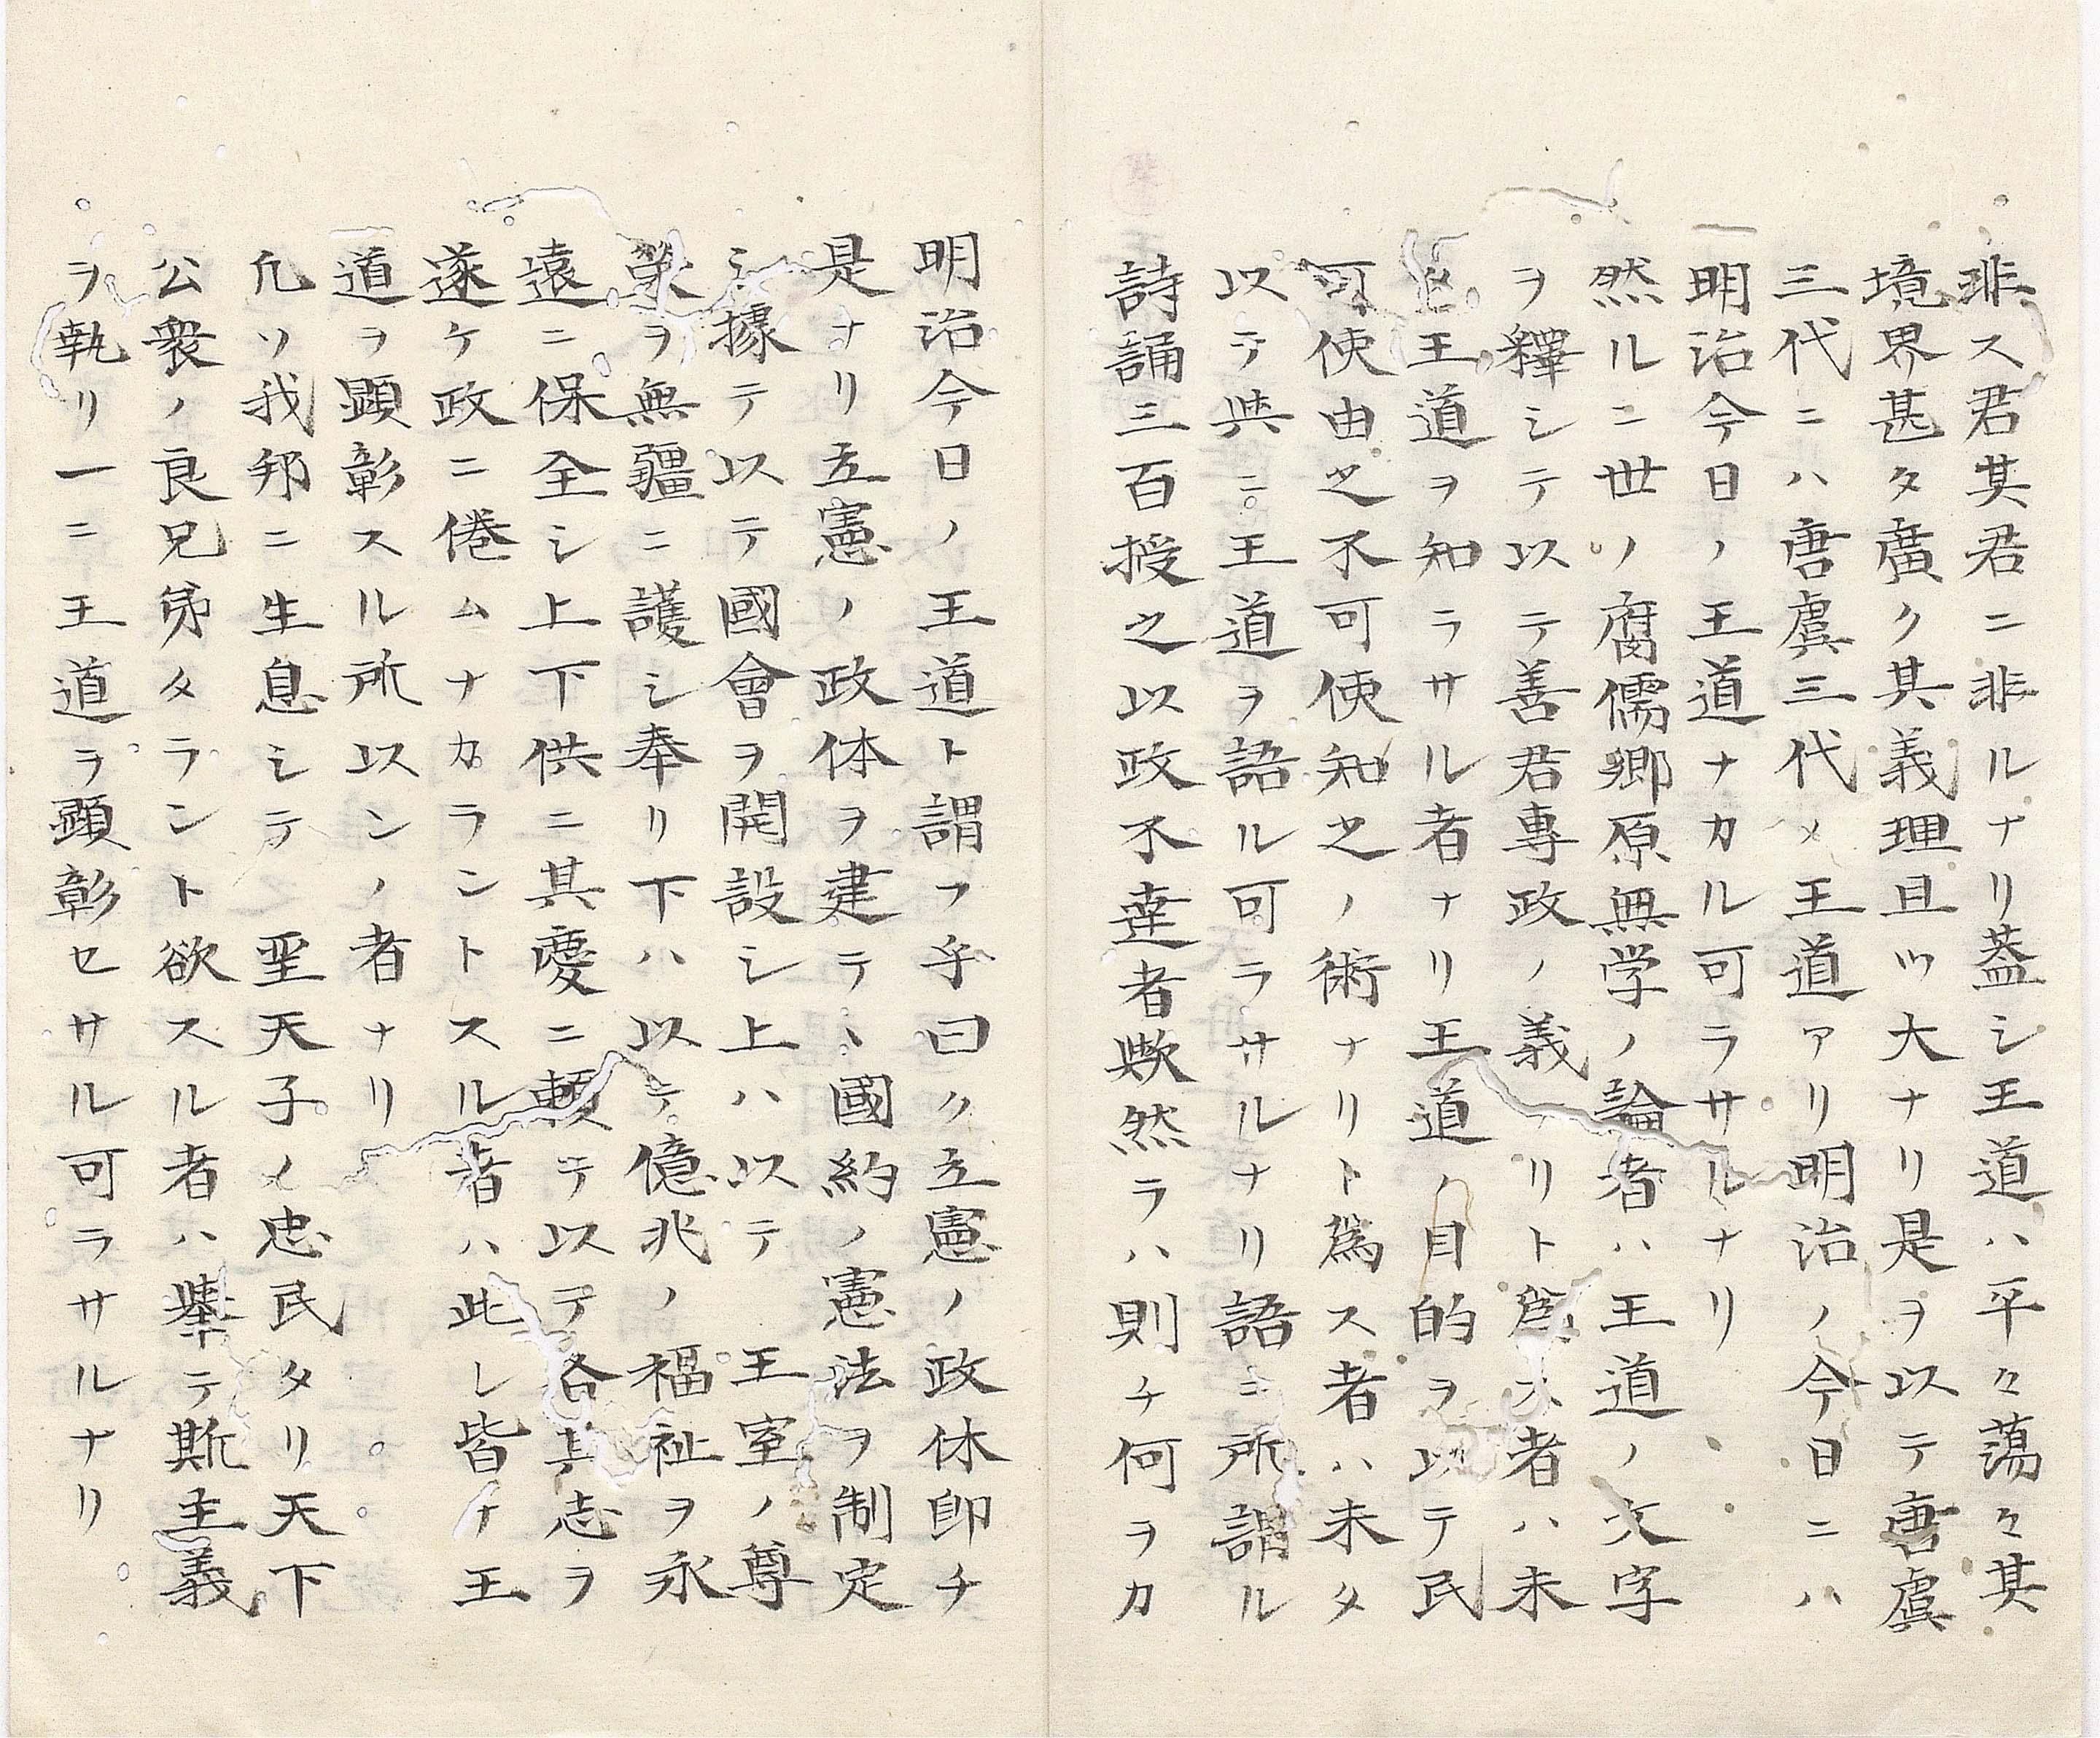 非ス君其君ニ非ルナリ蓋シ王道ハ平々蕩々其
境界甚タ廣ク其義理且ツ大ナリ是ヲ以テ唐虞
三代ニハ唐虞三代ノ王道アリ明治ノ今日ニハ
明治今日ノ王道ナカル可ラサルナリ
然ルニ世ノ腐儒郷原無学ノ論者ハ王道ノ文字
ヲ釋シテ以テ善君專政ノ義ナリト為ス者ハ未
王道ヲ知ラサル者ナリ王道ノ目的ヲ以テ民
可使由之不可使知之ノ術ナリト為ス者ハ未タ
以テ與ニ王道ヲ語ル可ラサルナリ語ニ所謂ル
詩誦三百授之以政不達者歟然ラハ則チ何ヲカ
明治今日ノ王道ト謂フ乎曰ク立憲ノ政体即チ
是ナリ立憲ノ政体ヲ建テヽ國約ノ憲法ヲ制定
シ據テ以テ國會ヲ開設シ上ハ以テ 王室ノ尊
榮ヲ無疆ニ護シ奉リ下ハ以テ億兆ノ福祉ヲ永
遠ニ保全シ上下供ニ其慶ニ頼テ以テ各其志ヲ
遂ケ政ニ倦ムナカラントスル者ハ此レ皆ナ王
道ヲ顕彰スル所以ンノ者ナリ
凡ソ我邦ニ生息シテ 聖天子ノ忠民タリ天下
公衆ノ良兄弟タラント欲スル者ハ擧テ斯主義
ヲ執リ一ニ王道ヲ顕彰セサル可ラサルナリ